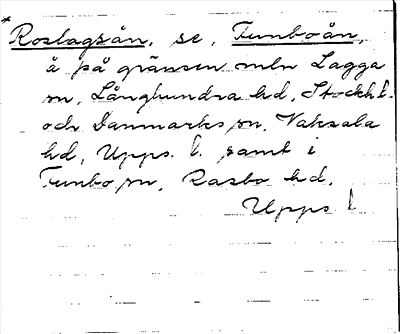 *Roslagsån, se, Funboån,
å på gränsen mln Lagga
sn, Långhundra hd, Stockh l.
och Danmarks sn, Vaksala
hd, Upps. l. samt i
Funbo sn, Rasbo hd,
Upps l